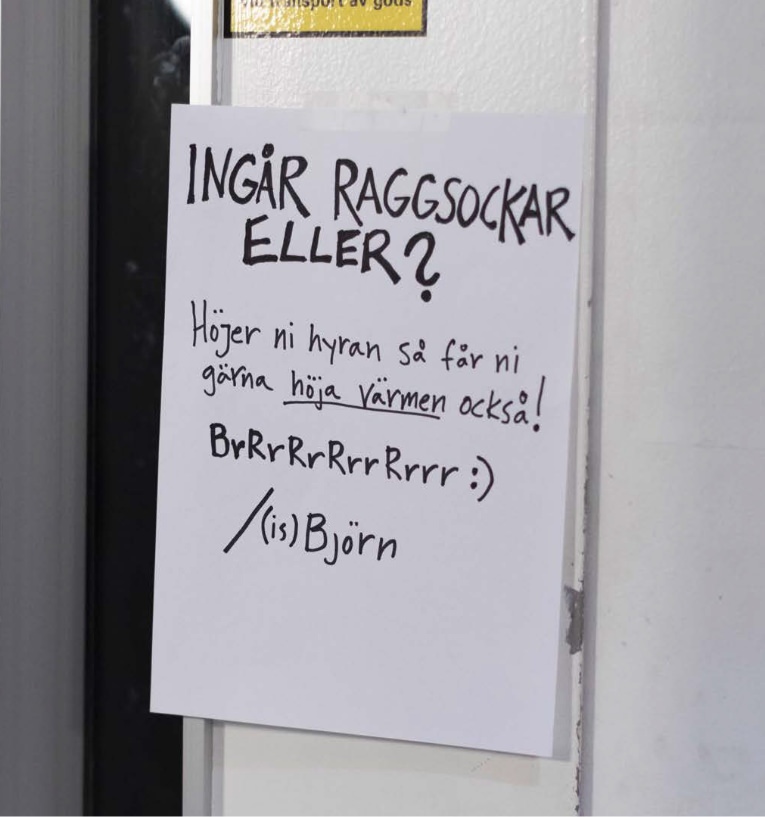 transport av gods
INGÅR RAGGSOCKAR
ELLER?
Höjer ni hyran så får ni
gärna höja värmen också!
BrRrRrRrrRrrr :)
/(is)Björn